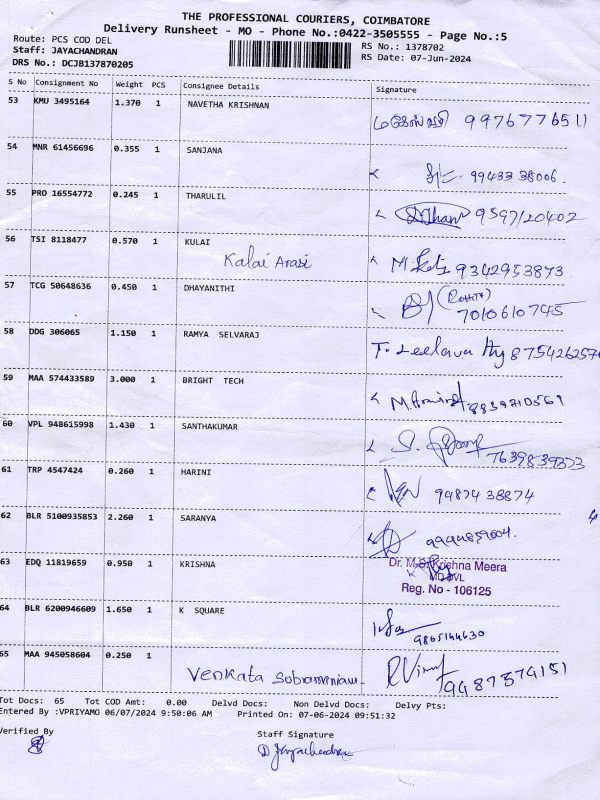 THE PROFESSIONAL COURIERS, COIMBATORE
Delivery Runsheet - MO - Phone No.:0422-3505555 - Page No.:5
Route: PCS COD DEL
RS No.: 1378702
Staff: JAYACHANDRAN
RS Date: 07-Jun-2024
DRS No.: DCJB137870205
S No Consignment No Weight PCS Consignee Details Signature
53 KMU 3495164 1.370 1 NAVETHA KRISHNAN
9976776511
54 MNR 61456696 0.355 1 SANJANA
99433 38006.
55 PRO 16554772 0.245 1 THARULIL
9597120402
56 TSI 8118477 0.570 1 KULAI
Kalai Arasi 9342953873
57 TCG 50648636 0.450 1 DHAYANITHI
7010610745
58 DDG 306065 1.150 1 RAMYA SELVARAJ
59 MAA 574433589 3.000 1 BRIGHT TECH
8839710569
60 VPL 948615998 1.430 1 SANTHAKUMAR
61 TRP 4547424 0.260 1 HARINI
99874 38874
62 BLR 5100935853 2.260 1 SARANYA
63 EDQ 11819659 0.950 1 KRISHNA
Krishna Meera
Reg. No - 106125
64 BLR 6200946609 1.650 1 K SQUARE
9865144630
65 MAA 945058604 0.250 1
Venkata
Tot Docs: 65 Tot COD Amt: 0.00 Delvd Docs: Non Delvd Docs: Delvy Pts:
Entered By :VPRIYAMO 06/07/2024 9:50:06 AM Printed On: 07-06-2024 09:51:32
Verified By
Staff Signature